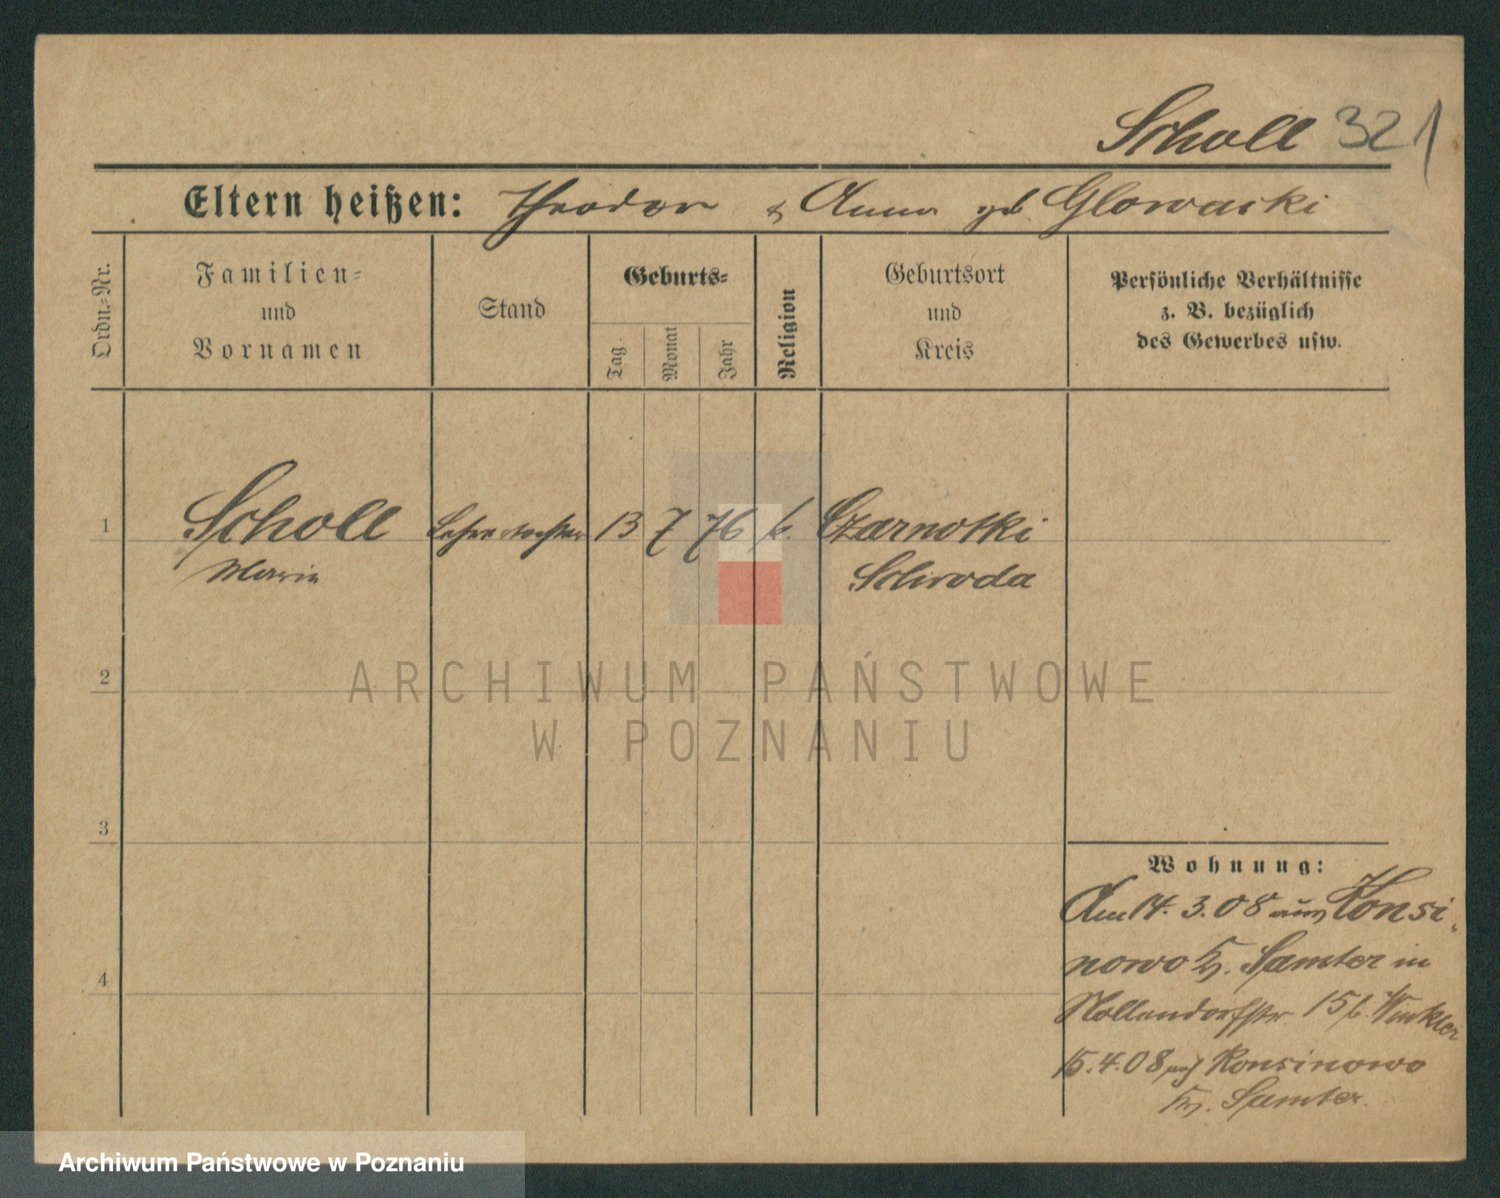 Scholl 321
Eltern heißen: Theodor & Anna geb. Glowacki
Ordn.=Nr.
Familien=
und
Vornamen
Stand
Geburts=
Tag
Monat
Jahr
Religion
Geburtsort
und
Kreis
Persönliche Verhältnisse
z. B. bezüglich
des Gewerbes usw.
1 Scholl 13 7 76 k. Czarnotki
Maria Schroda
2
3
4
Wohnung:
Am 14. 3. 08 aus Konsi-
nowo Kr. Samter in
Nollendorfstr. 15 b. Winkler
15. 4. 08 nach Konsinowo
Kr. Samter
ARCHIWUM PAŃSTWOWE
W POZNANIU
Archiwum Państwowe w Poznaniu